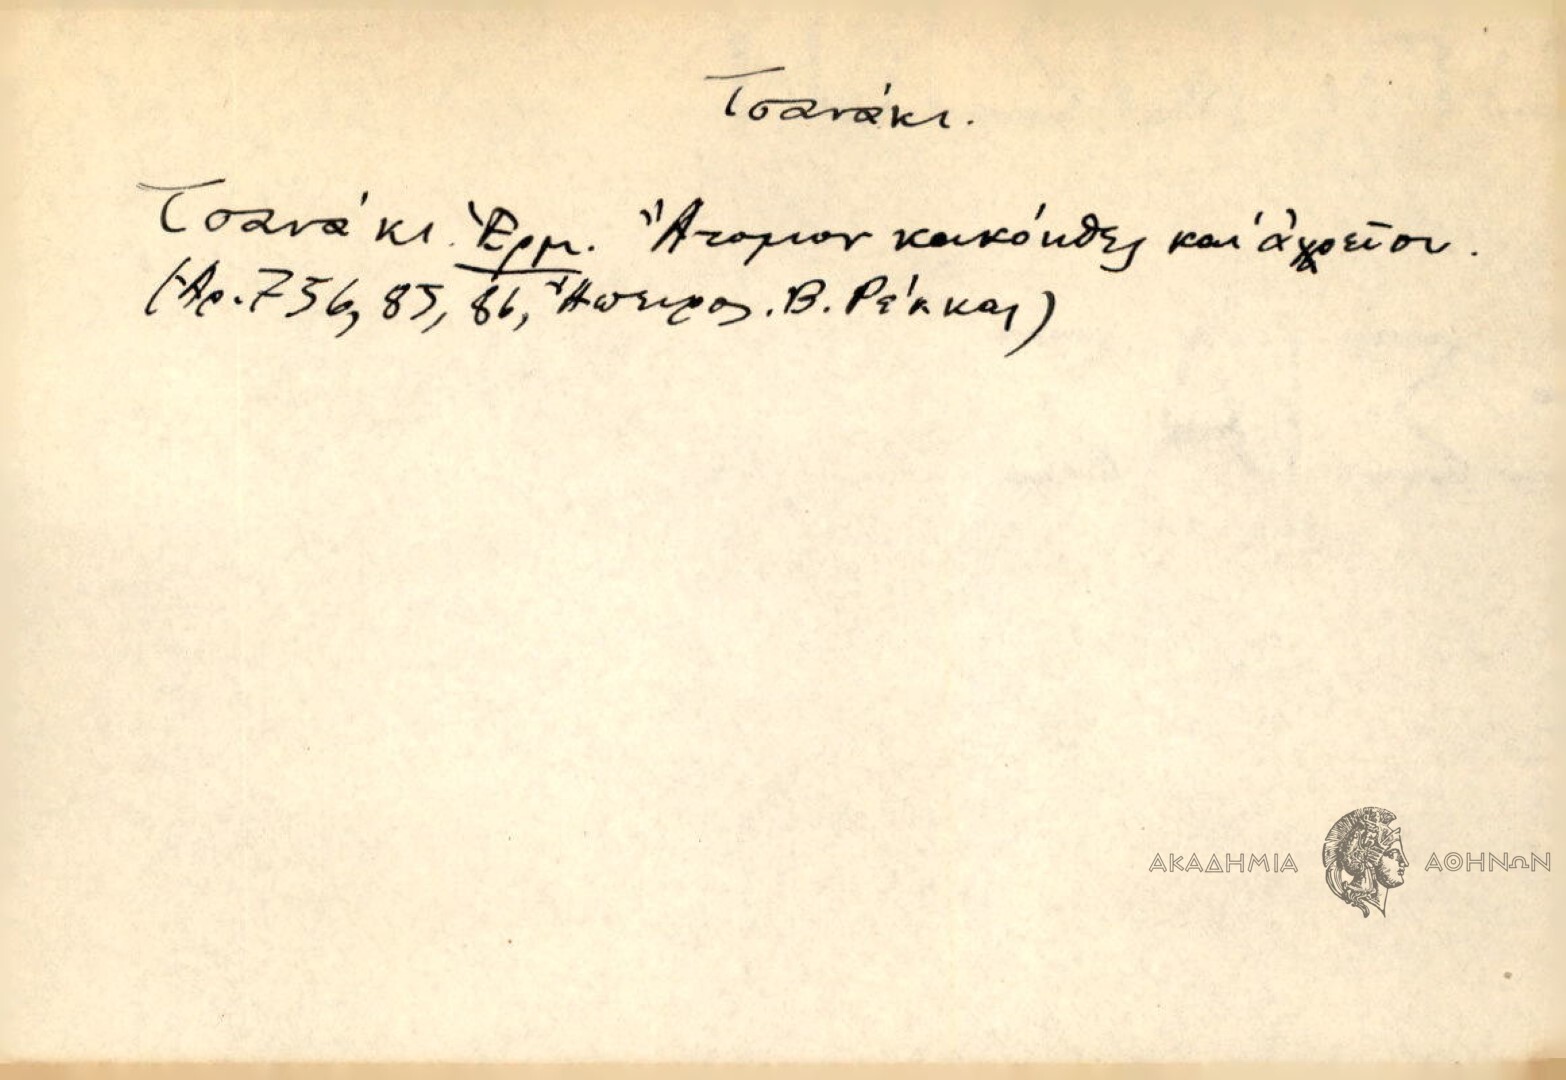 Τσανάκι.
Τσανάκι. Ἑρμ. Ἄτομον κακόηθες καὶ ἀχρεῖον.
(Ἀρ. 756, 85, 86, Ἤπειρος. Β. Ρέκκας)
ΑΚΑΔΗΜΙΑ ΑΘΗΝΩΝ